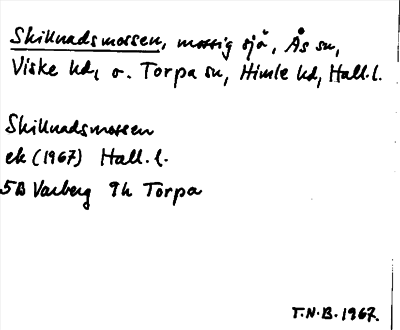 Skillnadsmossen, mossig sjö, Ås sn,
Viske hd, o. Torpa sn, Himle hd, Hall.l.
Skillnadsmossen
ek (1967) Hall.l.
5B Varberg 9h Torpa
T.N.B. 1967.